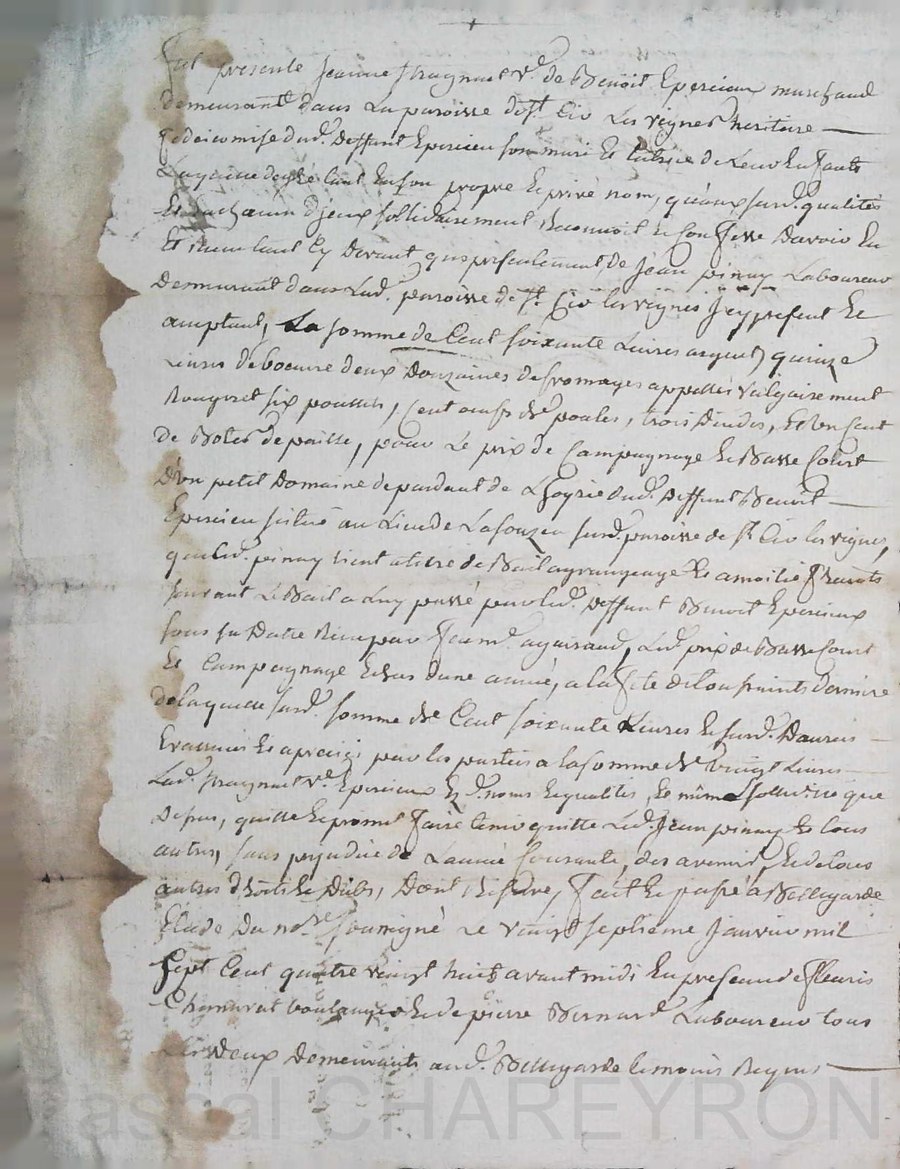 Fut presente Jeanne ve de Benoit Epercieux marchand
demeurante dans La paroisse de st Cir Les vignes heritiere
fideicomise dud. deffunt Epercieu son mari Et tutrice de Leurs Enfants
Laquelle de gré tant En son propre Et privé nom, qu'aux susd. qualités
Et sollidairement Reconnoit Et confesse Davoir Eu
Et Receu tant Cy Devant que presentement de Jean pinay Laboureur
Demeurant dans Lad. paroisse de st. Cir les vignes Icy present Et
acceptant, La somme de Cent soixante Livres argent, quinze
Livres de beaure deux Douzaines de fromages appellés vulgairement
Rougeret six poullets, Cent oeufs de poules, trois dindes, Et un Cent
de Botes de paille, pour Le prix de Campagnage Et Basse Court
D'un petit Domaine dependant de L'hoyrie dud. Deffunt Benoit
Epercieu scitué au Lieu de susd. paroisse de st Cir les vignes,
que led. pinay tient a titre de Bail a grangeage Et a moitié fruits
suivant Le Bail a Luy passé par led. Deffunt Benoit Epercieux
sous sa Datte Receu par Led. prix de Basse Court
Et Campagnage Echus dune année, a la fete de toussaints derniere
de laquelle susd. somme de Cent soixante Livres Et susd. Danrées
Evalluées Et apreciés par les parties a la somme de vingt Livres
Lad. ve. Epercieux Esd. noms Et qualités, Et même sollidité que
Dessus, quitte Et promet faire tenir quitte Led. Jean pinay Et tous
autres, sans prejudice de L'année Courante, des avenir, Et de tous
autres droits Et Dûs, Dont Reserve, fait Et passé a Bellegarde
Etude Du nore soussigné Le vingt septieme Janvier mil
sept Cent quatre vingt huit avant midi En presence de fleuris
boulanger Et de pierre Bernard Laboureur tous
Les Deux Demeurants aud. Bellegarde temoins Requis
Pascal CHAREYRON